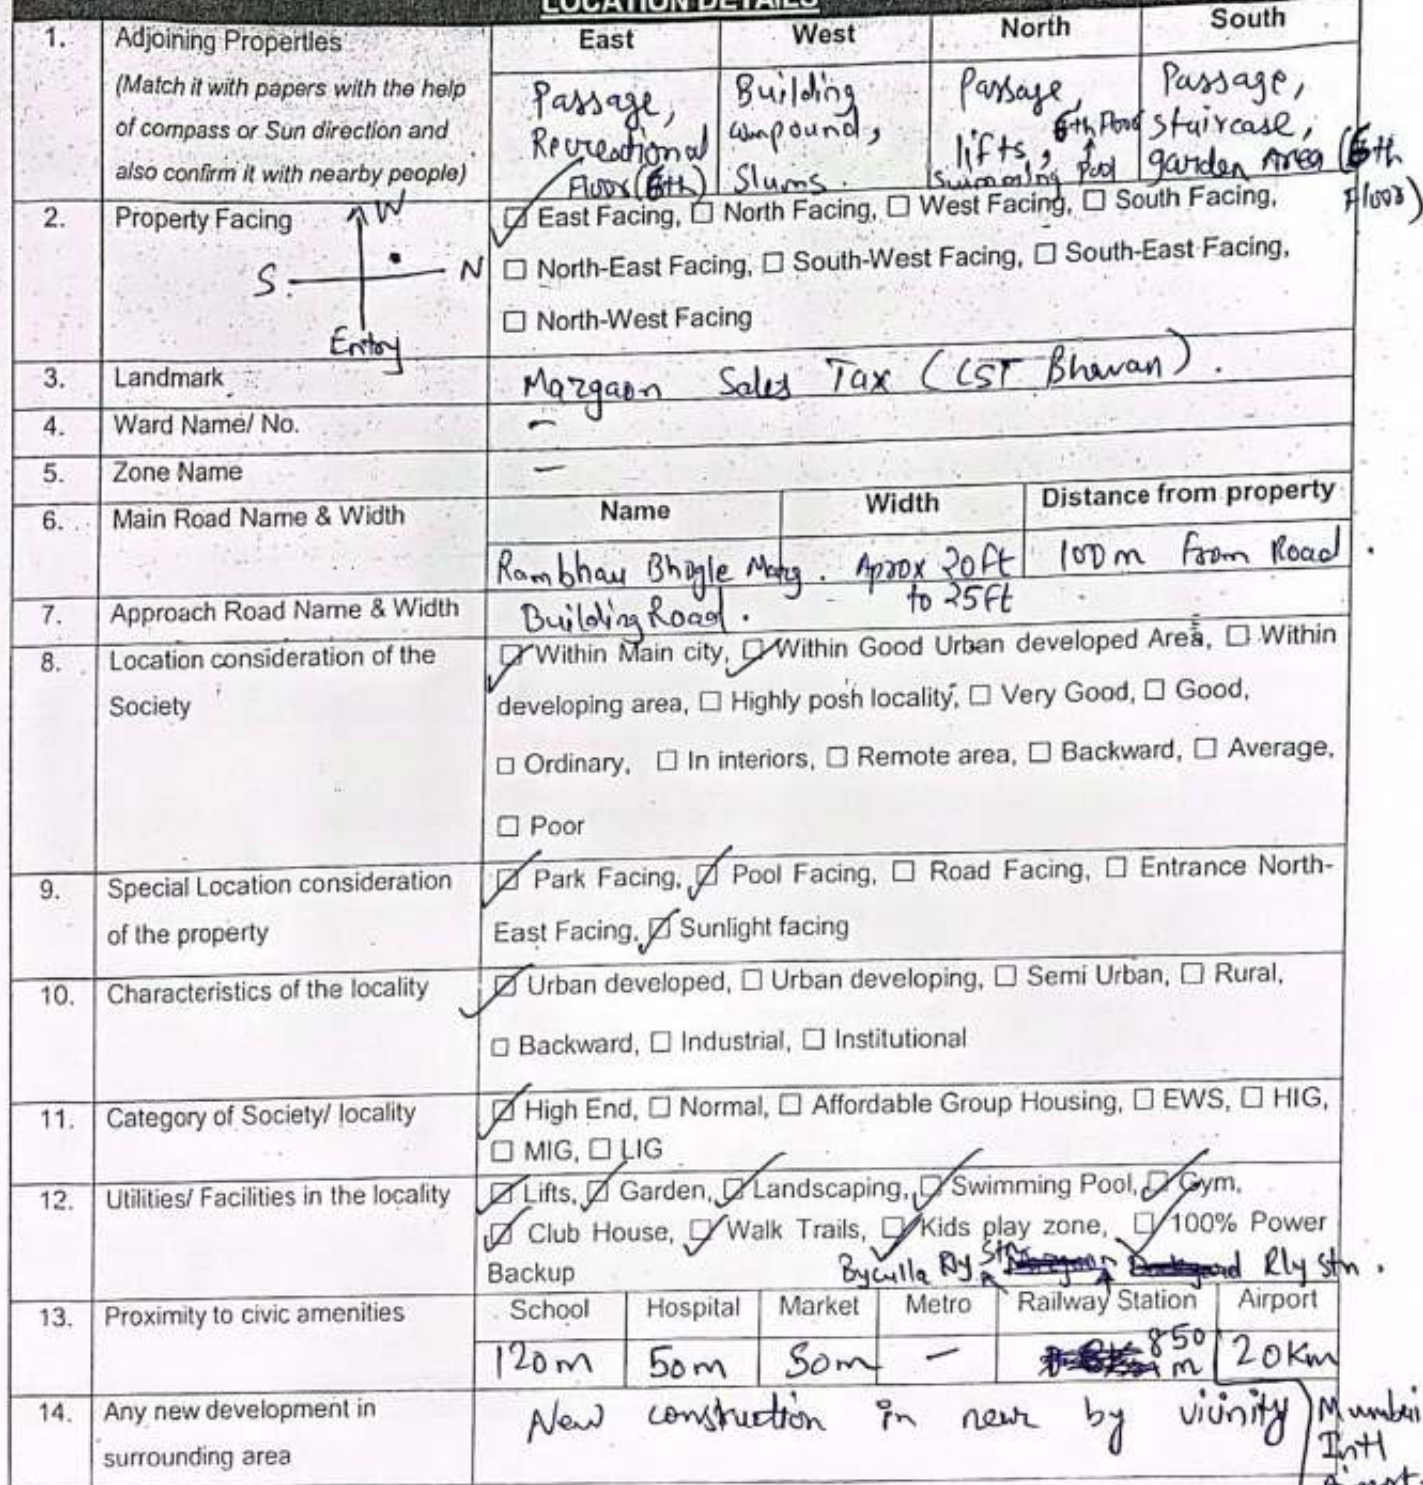 LOCATION DETAILS
1. Adjoining Properties East West North South
(Match it with papers with the help
of compass or Sun direction and
also confirm it with nearby people)
Passage,
Recreational
Floor (6th)
Building
compound,
Slums.
Passage,
lifts, 6th Floor
swimming pool
Passage,
staircase,
garden Area (6th
Floor)
2. Property Facing
W
S N
Entry
East Facing, North Facing, West Facing, South Facing,
North-East Facing, South-West Facing, South-East Facing,
North-West Facing
3. Landmark Mazgaon Sales Tax (GST Bhavan).
4. Ward Name/ No. -
5. Zone Name -
6. Main Road Name & Width Name Width Distance from property
Rambhau Bhogle Marg. Aprox 20ft 100m from Road.
to 25ft
7. Approach Road Name & Width Building Road.
8. Location consideration of the
Society
Within Main city, Within Good Urban developed Area, Within
developing area, Highly posh locality, Very Good, Good,
Ordinary, In interiors, Remote area, Backward, Average,
Poor
9. Special Location consideration
of the property
Park Facing, Pool Facing, Road Facing, Entrance North-
East Facing, Sunlight facing
10. Characteristics of the locality
Urban developed, Urban developing, Semi Urban, Rural,
Backward, Industrial, Institutional
11. Category of Society/ locality
High End, Normal, Affordable Group Housing, EWS, HIG,
MIG, LIG
12. Utilities/ Facilities in the locality
Lifts, Garden, Landscaping, Swimming Pool, Gym,
Club House, Walk Trails, Kids play zone, 100% Power
Backup
Byculla Rly Stn Rly stn.
13. Proximity to civic amenities School Hospital Market Metro Railway Station Airport
120m 50m 50m - 850 m 20Km
14. Any new development in
surrounding area
New construction in near by vicinity
Mumbai
Intl